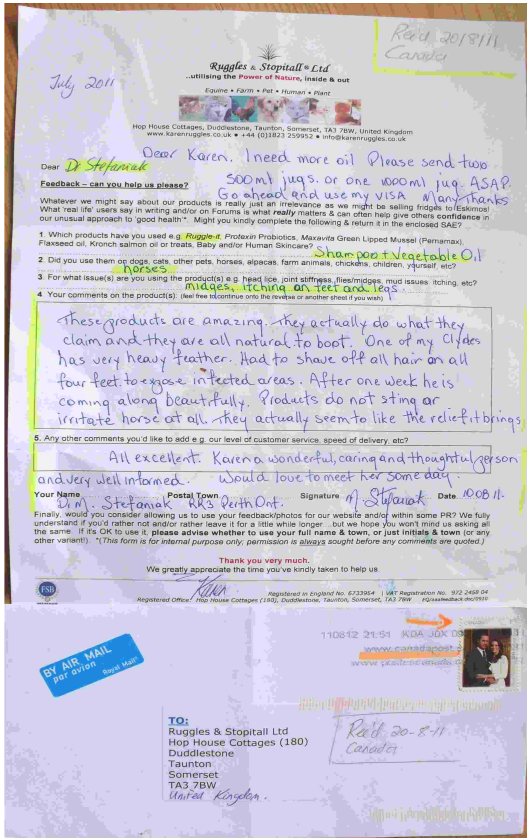 Rec'd 20/8/11
Canada
July 2011
Ruggles & Stopitall® Ltd
..utilising the Power of Nature, inside & out
Equine • Farm • Pet • Human • Plant
Hop House Cottages, Duddlestone, Taunton, Somerset, TA3 7BW, United Kingdom
www.karenruggles.co.uk • +44 (0)1823 259952 • info@karenruggles.co.uk
Dear Karen. I need more oil Please send two
Dear Di Stefaniak
500ml jugs. or one 1000ml jug ASAP.
Feedback – can you help us please?
Go ahead and use my VISA Many Thanks
Whatever we might say about our products is really just an irrelevance as we might be selling fridges to Eskimos!
What 'real life' users say in writing and/or on Forums is what really matters & can often help give others confidence in
our unusual approach to 'good health'*. Might you kindly complete the following & return it in the enclosed SAE?
1. Which products have you used e.g. Ruggle-it, Protexin Probiotics, Maxavita Green Lipped Mussel (Pernamax),
Flaxseed oil, Kronch salmon oil or treats, Baby and/or Human Skincare?
Shampoo + Vegetable Oil
2. Did you use them on dogs, cats, other pets, horses, alpacas, farm animals, chickens, children, yourself, etc?
horses
3. For what issue(s) are you using the product(s) e.g. head lice, joint stiffness, flies/midges, mud issues, itching, etc?
midges, itching on feet and legs.
4 Your comments on the product(s): (feel free to continue onto the reverse or another sheet if you wish)
These products are amazing. They actually do what they
claim and they are all natural to boot. One of my Clydes
has very heavy feather. Had to shave off all hair on all
four feet to expose infected areas. After one week he is
coming along beautifully. Products do not sting or
irritate horse at all. They actually seem to like the relief it brings
5. Any other comments you'd like to add e.g. our level of customer service, speed of delivery, etc?
All excellent. Karen a wonderful, caring and thoughtful person
and very well informed. Would love to meet her some day.
Your Name Postal Town Signature Date 10.08.11.
Di M. Stefaniak RR3 Perth Ont. M Stefaniak
Finally, would you consider allowing us to use your feedback/photos for our website and/or within some PR? We fully
understand if you'd rather not and/or rather leave it for a little while longer ...but we hope you won't mind us asking
all the same. If it's OK to use it, please advise whether to use your full name & town, or just initials & town (or any
other variant!). *(This form is for internal purpose only; permission is always sought before any comments are quoted.)
Thank you very much.
We greatly appreciate the time you've kindly taken to help us.
Karen
FSB
Registered in England No. 6733954 | VAT Registration No. 972 2458 04
Registered Office: Hop House Cottages (180), Duddlestone, Taunton, Somerset, TA3 7BW
110812 21:51 K0A
www.canadapost.
BY AIR MAIL
par avion Royal Mail®
TO:
Ruggles & Stopitall Ltd
Hop House Cottages (180)
Duddlestone
Taunton
Somerset
TA3 7BW
United Kingdom.
Rec'd 20-8-11
Canada